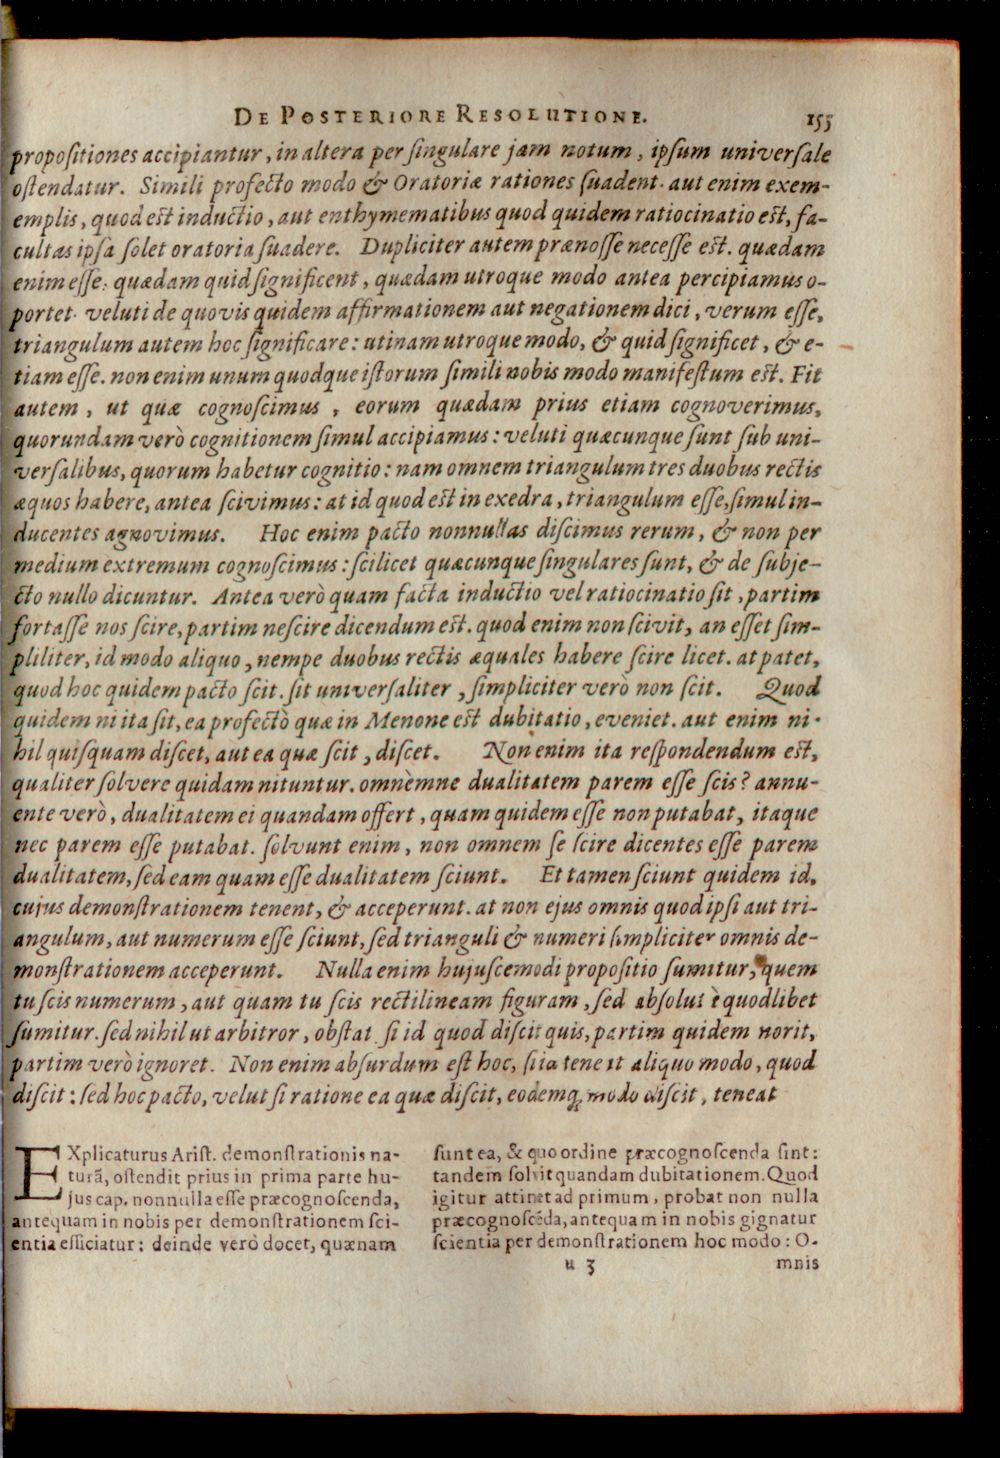 DE POSTERIORE RESOLUTIONE. 155
propositiones accipiantur, in altera per singulare jam notum, ipsum universale
ostendatur. Simili profecto modo & Oratoriæ rationes suadent. aut enim exem-
emplis, quod est inductio, aut enthymematibus quod quidem ratiocinatio est, fa-
cultas ipsa solet oratoria suadere. Dupliciter autem prænosse necesse est. quædam
enim esse: quædam quid significent, quædam utroque modo antea percipiamus o-
portet. veluti de quovis quidem affirmationem aut negationem dici, verum esse,
triangulum autem hoc significare: utinam utroque modo, & quid significet, & e-
tiam esse. non enim unum quodque istorum simili nobis modo manifestum est. Fit
autem, ut quæ cognoscimus, eorum quædam prius etiam cognoverimus,
quorundam verò cognitionem simul accipiamus: veluti quæcunque sunt sub uni-
versalibus, quorum habetur cognitio: nam omnem triangulum tres duobus rectis
æquos habere, antea scivimus: at id quod est in exedra, triangulum esse, simul in-
ducentes agnovimus. Hoc enim pacto nonnullas discimus rerum, & non per
medium extremum cognoscimus: scilicet quæcunque singulares sunt, & de subje-
cto nullo dicuntur. Antea verò quam facta inductio vel ratiocinatio sit, partim
fortasse nos scire, partim nescire dicendum est. quod enim non scivit, an esset sim-
pliliter, id modo aliquo, nempe duobus rectis æquales habere scire licet. at patet,
quod hoc quidem pacto scit. sit universaliter, simpliciter verò non scit. Quod
quidem ni ita sit, ea profectò quæ in Menone est dubitatio, eveniet. aut enim ni-
hil quisquam discet, aut ea quæ scit, discet. Non enim ita respondendum est,
qualiter solvere quidam nituntur. omnèmne dualitatem parem esse scis? annu-
ente verò, dualitatem ei quandam offert, quam quidem esse non putabat, itaque
nec parem esse putabat. solvunt enim, non omnem se scire dicentes esse parem
dualitatem, sed eam quam esse dualitatem sciunt. Et tamen sciunt quidem id,
cujus demonstrationem tenent, & acceperunt. at non ejus omnis quod ipsi aut tri-
angulum, aut numerum esse sciunt, sed trianguli & numeri simpliciter omnis de-
monstrationem acceperunt. Nulla enim hujuscemodi propositio sumitur, quem
tu scis numerum, aut quam tu scis rectilineam figuram, sed absolutè quodlibet
sumitur. sed nihil ut arbitror, obstat si id quod discit quis, partim quidem norit,
partim verò ignoret. Non enim absurdum est hoc, si ita tenet aliquo modo, quod
discit: sed hoc pacto, velut si ratione ea quæ discit, eodemq; modo discit, teneat
EXplicaturus Arist. demonstrationis na-
turã, ostendit prius in prima parte hu-
jus cap. nonnulla esse præcognoscenda,
antequam in nobis per demonstrationem sci-
entia efficiatur: deinde verò docet, quænam
sunt ea, & quo ordine præcognoscenda sint:
tandem solvit quandam dubitationem. Quod
igitur attinet ad primum, probat non nulla
præcognoscẽda, antequam in nobis gignatur
scientia per demonstrationem hoc modo: O-
u 3 mnis